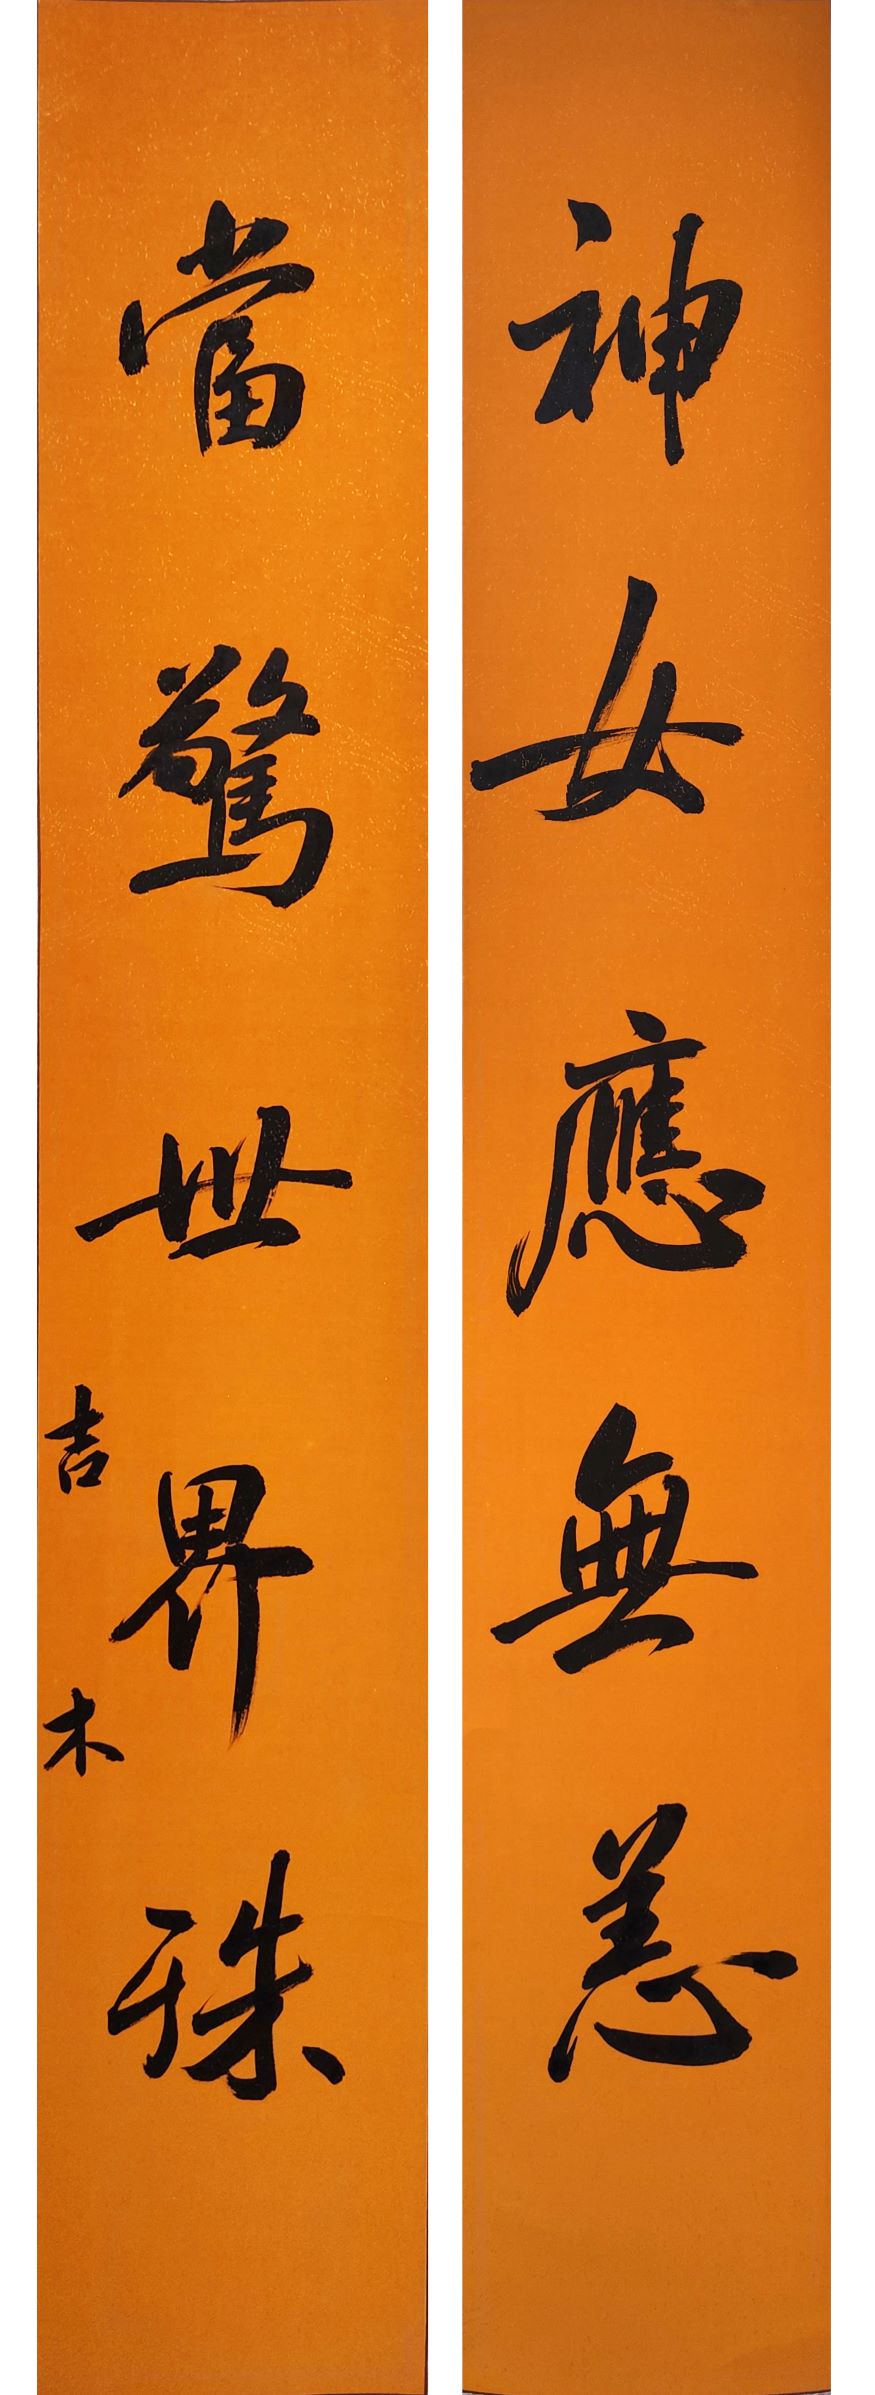 神女應無恙
當驚世界殊
吉木